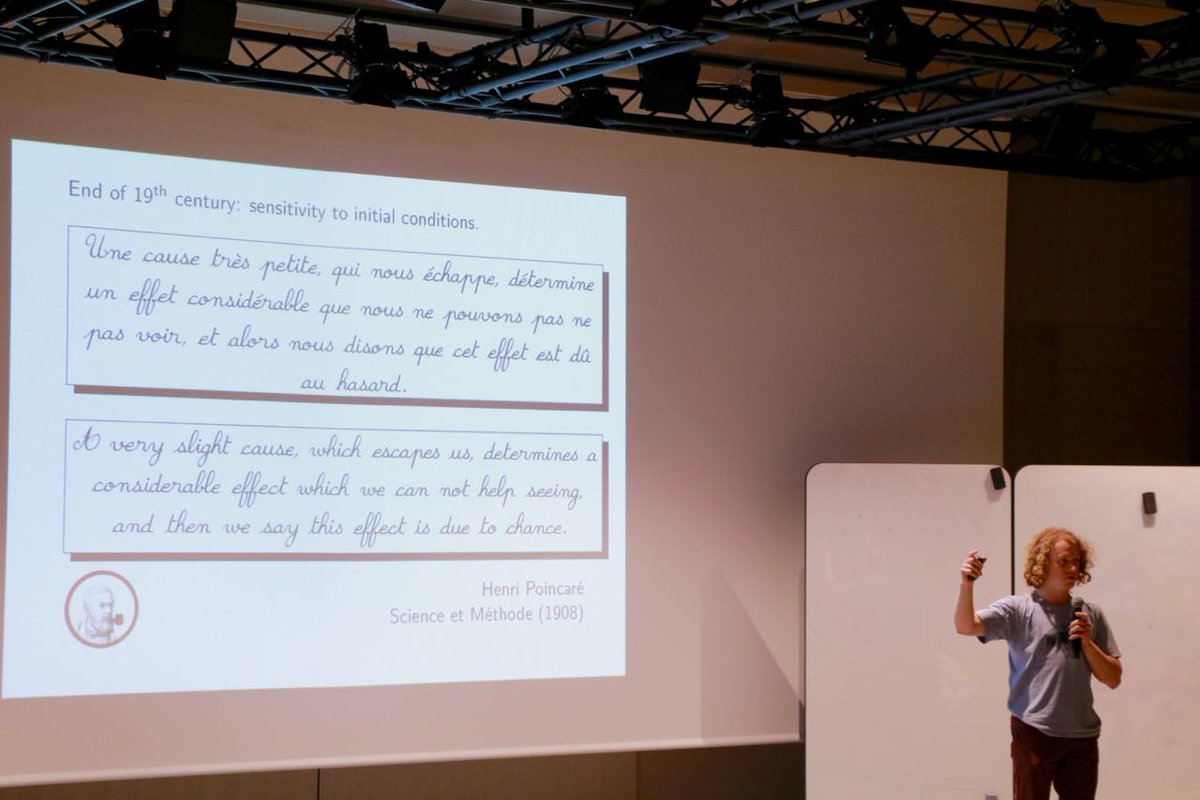 End of 19th century: sensitivity to initial conditions.
Une cause très petite, qui nous échappe, détermine
un effet considérable que nous ne pouvons pas ne
pas voir, et alors nous disons que cet effet est dû
au hasard.
A very slight cause, which escapes us, determines a
considerable effect which we can not help seeing,
and then we say this effect is due to chance.
Henri Poincaré
Science et Méthode (1908)